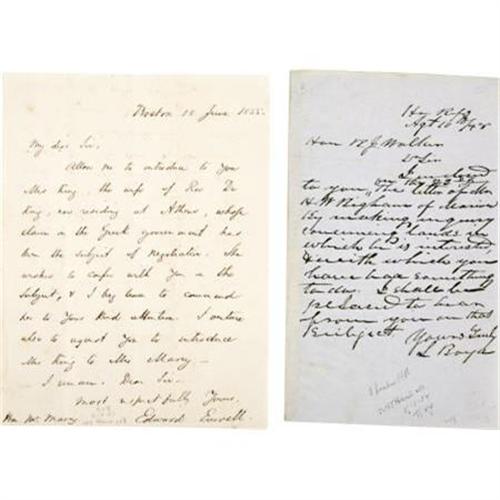 Boston 18 June 1855.
My dear Sir,
Allow me to introduce to you
Mrs King, the wife of Rev Dr
King, now residing at Athens, whose
claim on the Greek government has
been the subject of Negotiation. She
wishes to confer with you on the
subject, & I beg leave to commend
her to your kind attention. I venture
also to request you to introduce
Mrs King to Mrs Marcy.
I remain, Dear Sir,
most respectfully Yours,
Hon Mr. Marcy Edward Everett.
Ho Rps
Hon R J Walker
Dr Sir
to you, the letter of Mr
H W of
By making inquiry
concerning lands in
which he is interested,
& with which you
have had something
to do. I shall be
pleased to hear
from you on that
Subject
Yours Truly
L Boyd